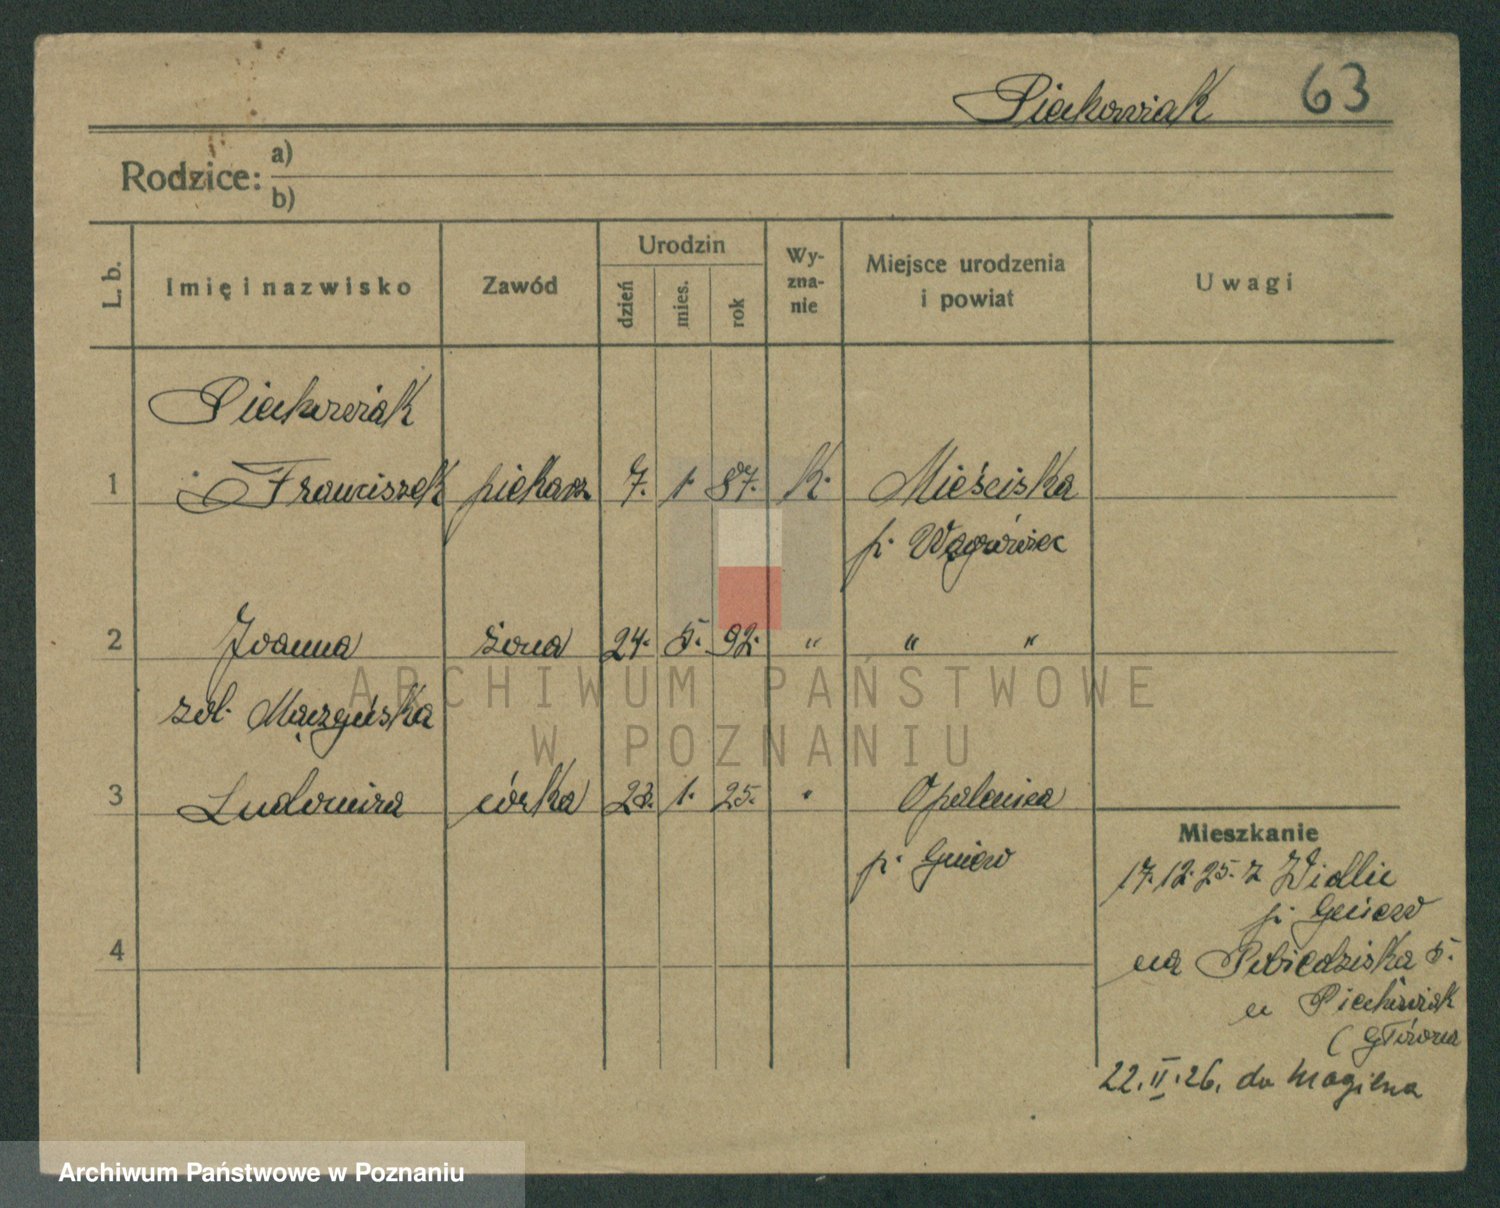 Piechowiak 63
Rodzice: a)
b)
L. b. Imię i nazwisko Zawód Urodzin dzień mies. rok Wyznanie Miejsce urodzenia i powiat Uwagi
Piechowiak
1 Franciszek piekarz 7. 1. 87. K. Mieściska
p. Wągrówiec
2 Joanna żona 24. 5. 92. " " "
zd. Mączyńska
3 Ludomira córka 23. 1. 25. " Opalenica
p. Gniew
4
Mieszkanie
17.12.25. z Widlic
p. Gniew
na Pobiedziska 5.
u Piechowiak
(główna
22.II.26. do Mogilna
ARCHIWUM PAŃSTWOWE
W POZNANIU
Archiwum Państwowe w Poznaniu